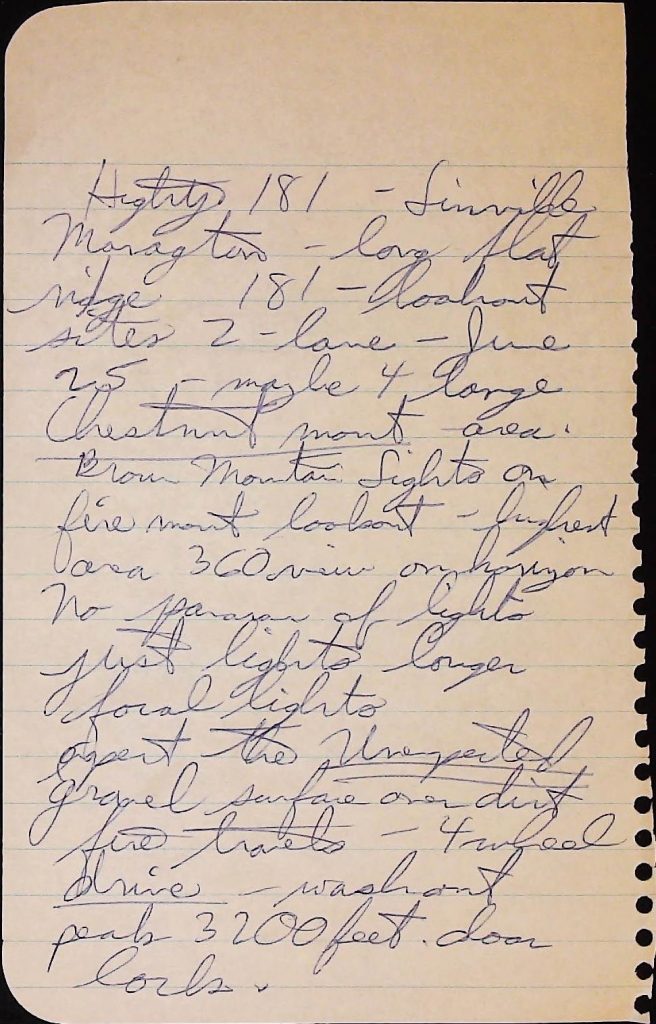 Highty 181 - Linville
Moragton - long flat
ridge 181 - lookout
sites 2 - lane - June
25 - maybe 4 large
Chestnut mont area.
Brown Mountain Lights on
fire mont lookout - highest
area 360 view on horizon
No of lights
just lights longer
focal lights
expect the Unexpected
gravel surface over dirt
fire travels - 4 wheel
drive - washout
peak 3200 feet. door
locks.